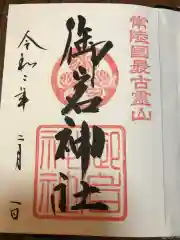 常陸國最古霊山
御岩神社
令和二年
二月
一日